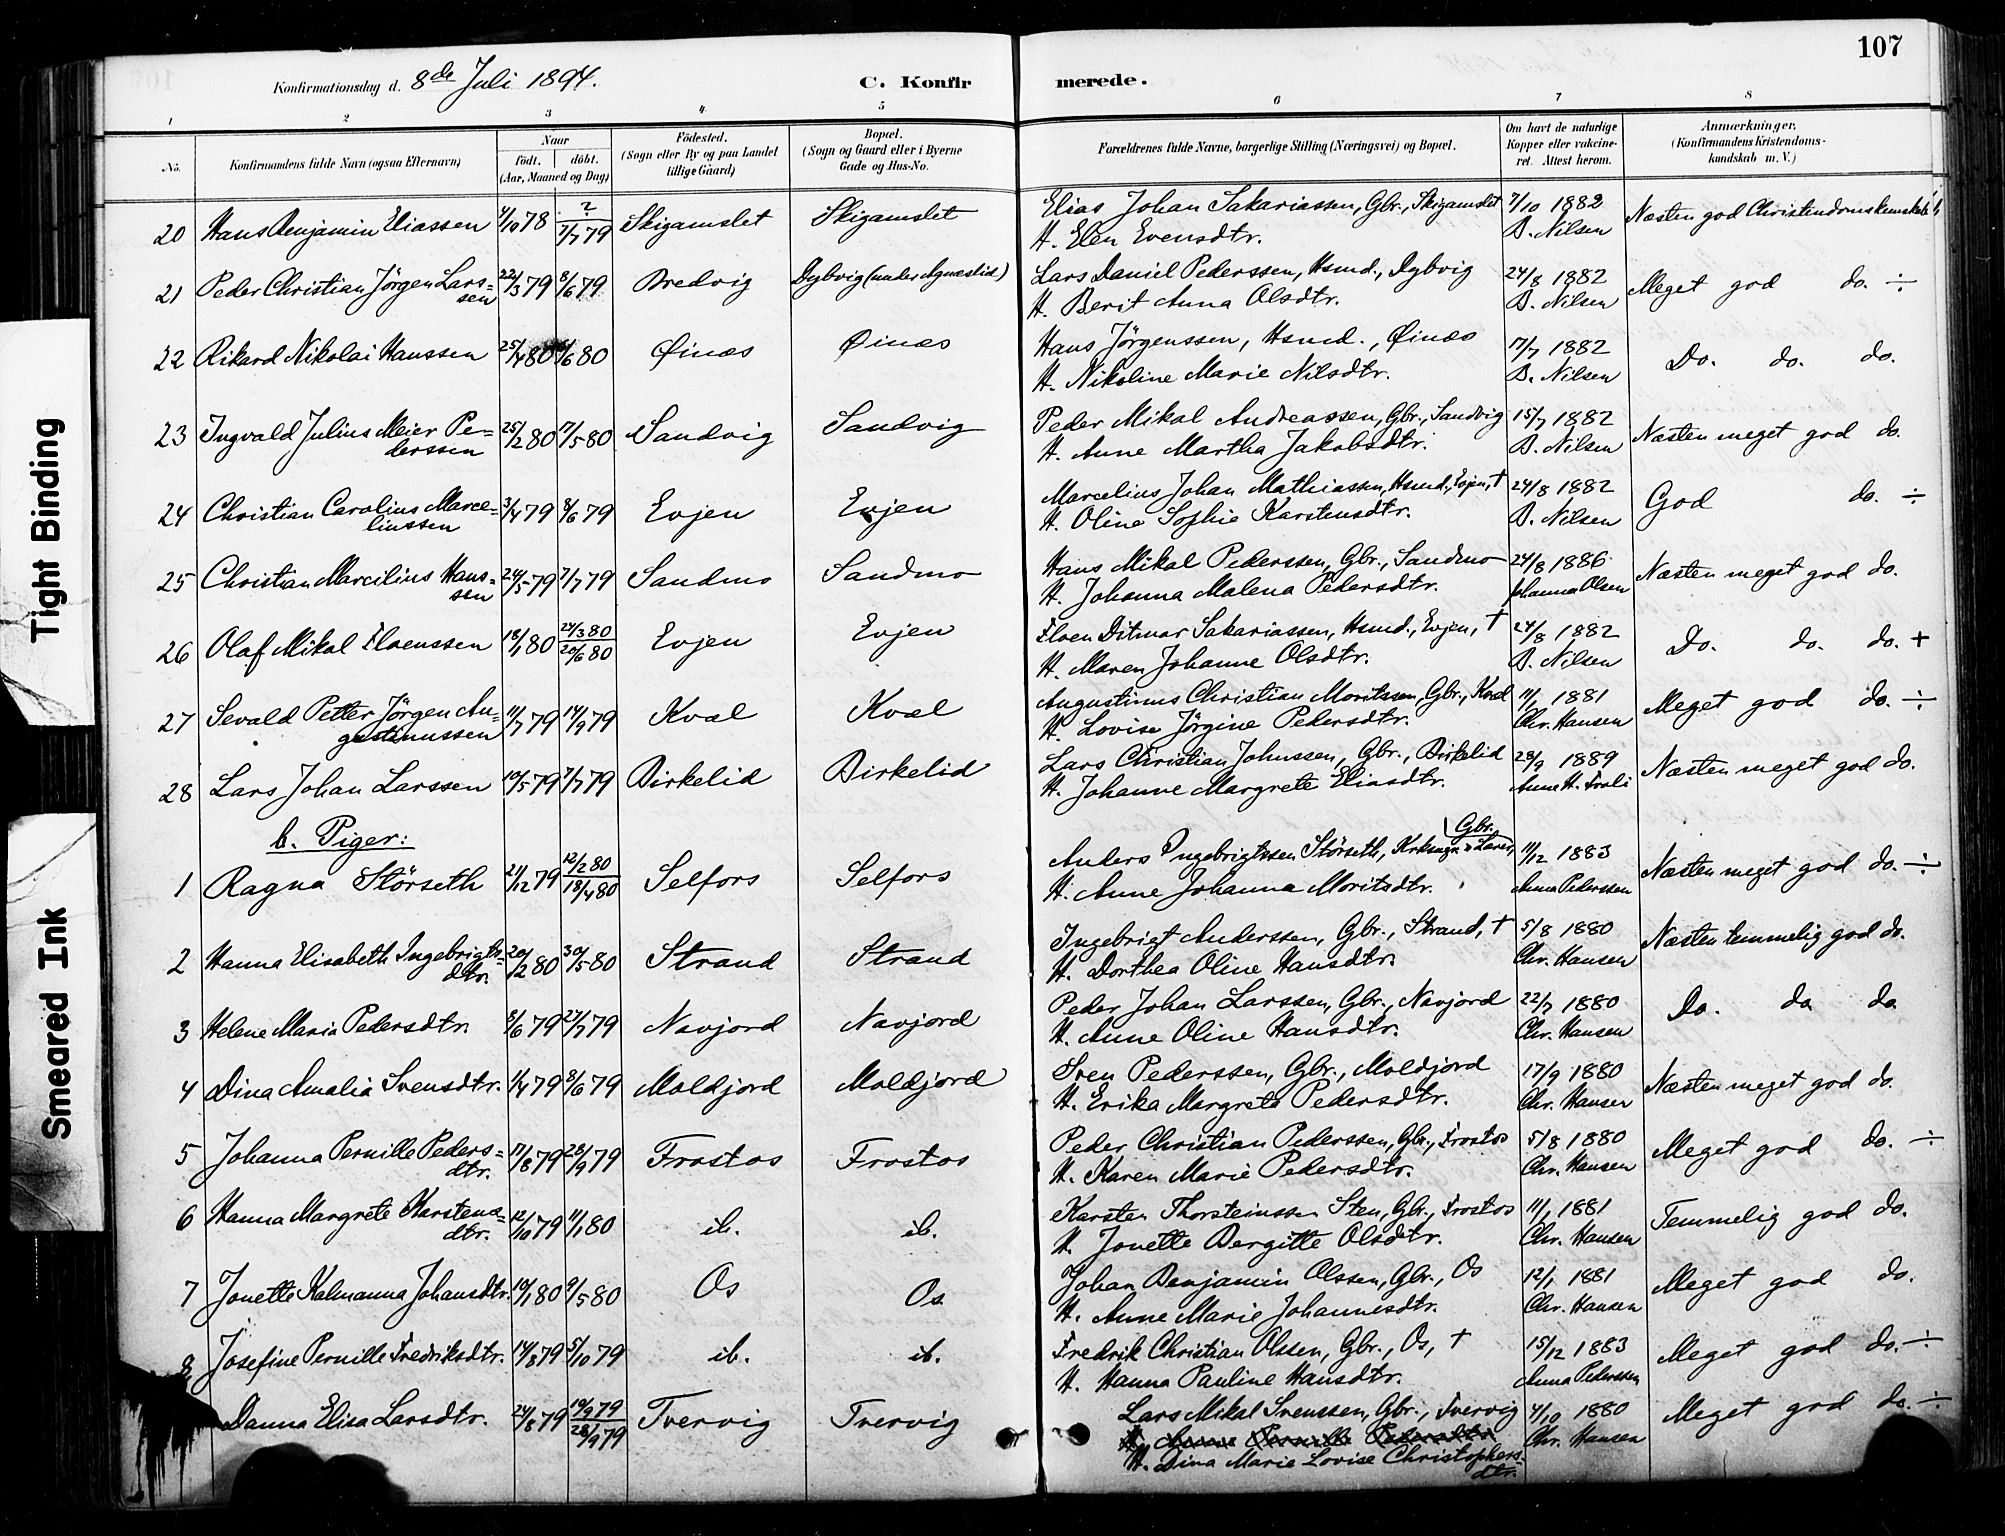 107
Konfirmationsdag d. 8de Juli 1894.
C. Konfirmerede.
1 2 3 4 5 6 7 8
No. Konfirmandens fulde Navn (ogsaa Efternavn) Naar födt. döbt. (Aar, Maaned og Dag) Födested. (Sogn eller By og paa Landet tillige Gaard) Bopæl. (Sogn og Gaard eller i Byerne Gade og Hus-No. Forældrenes fulde Navne, borgerlige Stilling (Næringsvei) og Bopæl. Om havt de naturlige Kopper eller vaccineret. Attest herom. Anmærkninger. (Konfirmandens Kristendomskundskab m. V.)
20 Hans Benjamin Eliassen 4/10 78 ? 7/7 79 Skigamslet Skigamslet Elias Johan Sakariassen, Gbr., Skigamslet 7/10 1882 Næsten god Christendomskundskab
H. Elen Evensdtr. B. Nilsen
21 Peder Christian Jörgen Lars= 22/3 79 8/6 79 Bredvig Dybvig (under Agnæslid) Lars Daniel Pederssen, Hsmd., Dybvig 24/8 1882 Meget god do. ÷
sen H. Berit Anna Olsdtr. B. Nilsen
22 Rikard Nikolai Hanssen 25/4 80 /6 80 Øinæs Øinæs Hans Jörgenssen, Hsmd., Øinæs 17/7 1882 Do. do. do.
H. Nikoline Marie Nilsdtr. B. Nilsen
23 Ingvald Julius Meier Pe= 25/2 80 17/5 80 Sandvig Sandvig Peder Mikal Andreassen, Gbr., Sandvig 15/7 1882 Næsten meget god do.
derssen H. Anne Martha Jakobsdtr. B. Nilsen
24 Christian Carolius Marce= 3/4 79 8/6 79 Evjen Evjen Marcelius Johan Mathiassen, Hsmd., Evjen, † 24/8 1882 God do. ÷
liussen H. Oline Sophie Karstensdtr. B. Nilsen
25 Christian Marcilius Hans= 24/5 79 7/7 79 Sandmo Sandmo Hans Mikal Pederssen, Gbr., Sandmo 24/8 1886 Næsten meget god do.
sen H. Johanna Malena Pedersdtr. Johanna Olsen
26 Olaf Mikal Eloenssen 18/1 80 24/3 80 20/6 80 Evjen Evjen Eloen Ditmar Sakariassen, Hsmd., Evjen, † 24/8 1882 Do. do. do. +
H. Maren Johanne Olsdtr. B. Nilsen
27 Sevald Petter Jörgen Au= 11/7 79 14/9 79 Kval Kval Augustinus Christian Moritssen, Gbr., Kval 11/1 1881 Meget god do. ÷
gustinussen H. Lovise Jörgine Pedersdtr. Chr. Hansen
28 Lars Johan Larssen 10/5 79 7/7 79 Birkelid Birkelid Lars Christian Johnssen, Gbr., Birkelid 28/9 1889 Næsten meget god do.
H. Johanne Margrete Eliasdtr. Anne H.
b. Piger:
Gbr.
1 Ragna Störseth 21/12 79 12/2 80 18/4 80 Selfors Selfors Anders Ingebrigtssen Störseth, Lærer, 11/12 1883 Næsten meget god do. ÷
H. Anne Johanna Moritsdtr. Anna Pederssen
2 Hanna Elisabeth Ingebrigts= 20/2 80 30/5 80 Strand Strand Ingebrigt Anderssen, Gbr., Strand, † 5/8 1880 Næsten temmelig god do.
dtr. H. Dorthea Oline Hansdtr. Chr. Hansen
3 Helene Maria Pedersdtr. 8/6 79 27/7 79 Navjord Navjord Peder Johan Larssen, Gbr., Navjord 22/7 1880 Do. do do.
H. Anne Oline Hansdtr. Chr. Hansen
4 Dina Amalia Svensdtr. 1/4 79 8/6 79 Moldjord Moldjord Sven Pederssen, Gbr., Moldjord 17/9 1880 Næsten meget god do.
H. Erika Margrete Pedersdtr. Chr. Hansen
5 Johanna Pernille Peders= 17/8 79 28/9 79 Frostos Frostos Peder Christian Pederssen, Gbr., Frostos 5/8 1880 Meget god do. ÷
dtr. H. Karen Marie Pedersdtr. Chr. Hansen
6 Hanna Margrete Karstens= 12/10 79 11/1 80 ib. ib. Karsten Thorsteinssen Sten, Gbr., Frostos 11/1 1881 Temmelig god do.
dtr. H. Jonette Bergitte Olsdtr. Chr. Hansen
7 Jonette Kalmanna Johansdtr. 10/1 80 9/5 80 Os Os Johan Benjamin Olssen, Gbr., Os 12/1 1881 Meget god do.
H. Anne Marie Johannesdtr. Chr. Hansen
8 Josefine Pernille Fredriksdtr. 14/8 79 5/10 79 ib. ib. Fredrik Christian Olssen, Gbr., Os, † 15/12 1883 Meget god do. ÷
H. Hanna Pauline Hansdtr. Anna Pederssen
Danna Elisa Larsdtr. 24/8 79 10/9 79 28/9 79 Tvervig Tvervig Lars Mikal Svenssen, Gbr., Tvervig 4/10 1880 Meget god do. ÷
Chr. Hansen
H. Dina Marie Lovise Christophers=
dtr.
Tight Binding
Smeared Ink